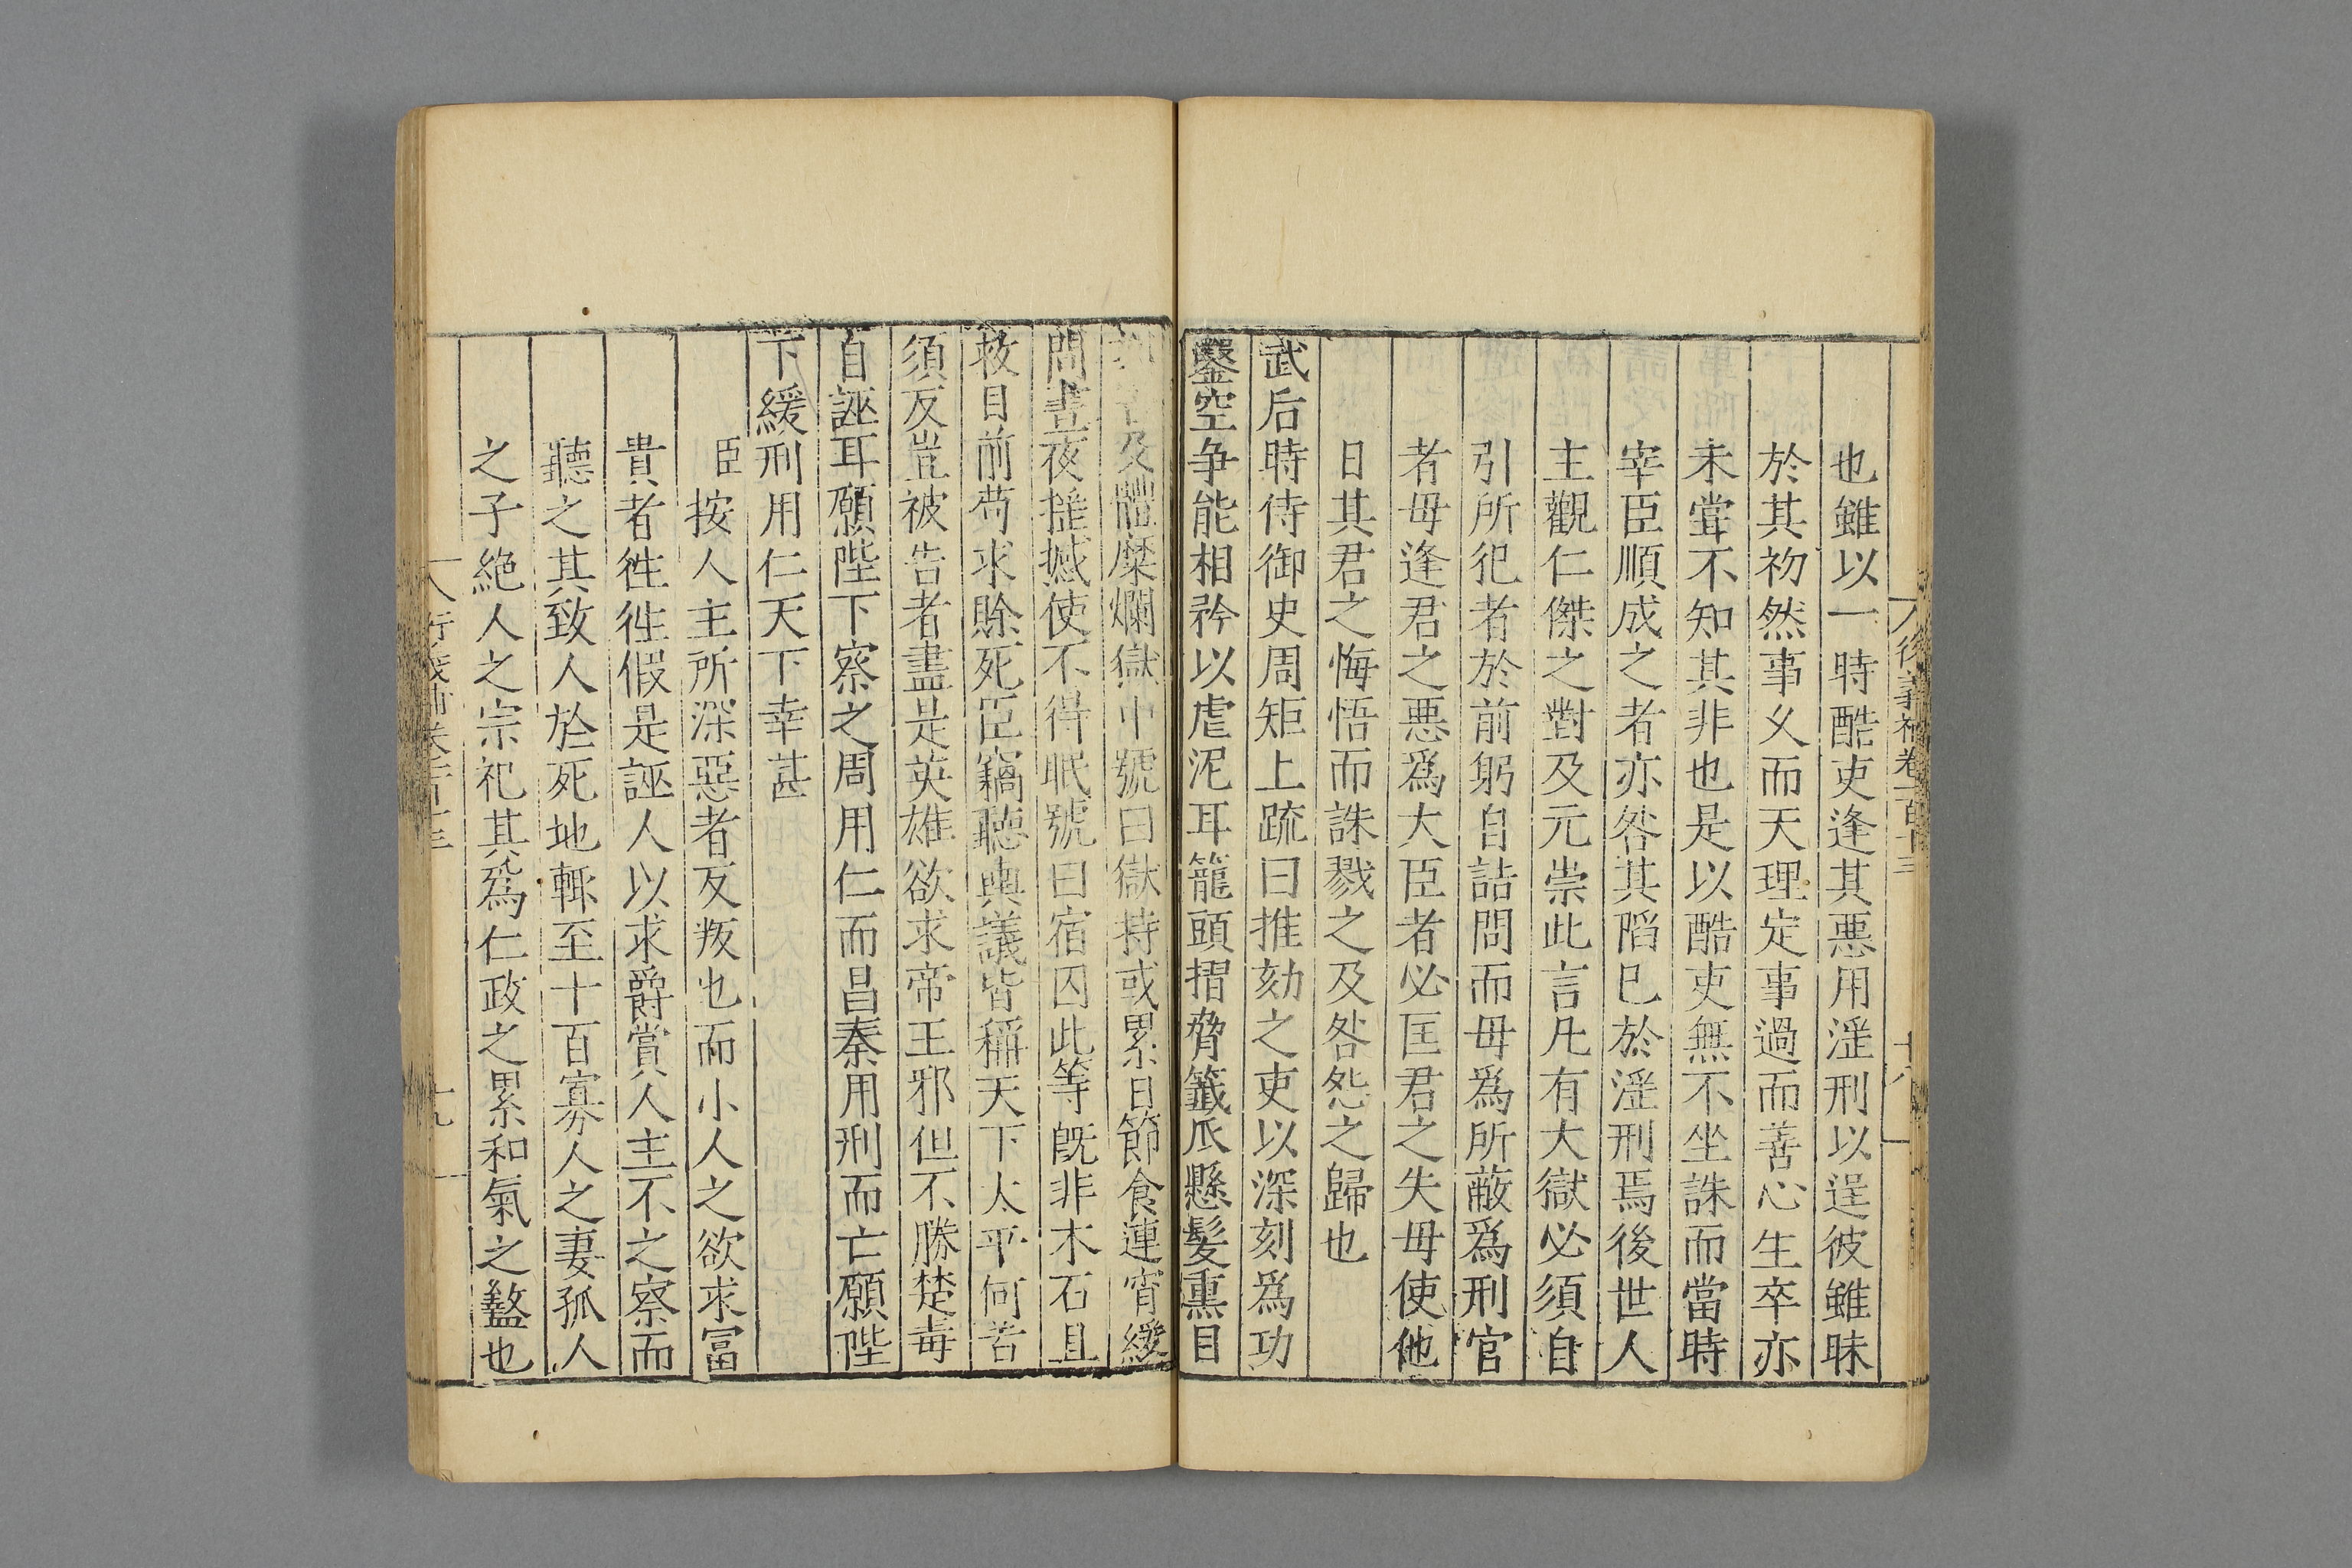 衍義補卷一百十三
十八
也雖以一時酷吏逢其悪用淫刑以逞彼雖昧
於其初然事乆而天理定事過而善心生卒亦
未甞不知其非也是以酷吏無不坐誅而當時
宰臣順成之者亦咎其陷巳於淫刑焉後世人
主觀仁傑之對及元崇此言凡有大獄必須自
引所犯者於前躬自詰問而毋爲所蔽爲刑官
者毋逢君之悪爲大臣者必匡君之失毋使他
日其君之悔悟而誅戮之及咎怨之歸也
武后時侍御史周矩上疏曰推劾之吏以深刻爲功
鑿空争能相矜以虐泥耳籠頭摺脅籖爪懸髮熏目
及體糜爛獄中號曰獄持或累日節食連宵緩
問晝夜摇撼使不得眠號曰宿囚此等旣非木石且
救目前苟求賖死臣竊聽輿議皆稱天下太平何苦
須反豈被告者盡是英雄欲求帝王邪但不勝楚毒
自誣耳願陛下察之周用仁而昌秦用刑而亡願陛
下緩刑用仁天下幸甚
臣按人主所深惡者反叛也而小人之欲求冨
貴者徃徃假是誣人以求爵賞人主不之察而
聽之其致人於死地輙至十百寡人之妻孤人
之子絶人之宗祀其爲仁政之累和氣之盭也
衍義補卷一百十三
十九